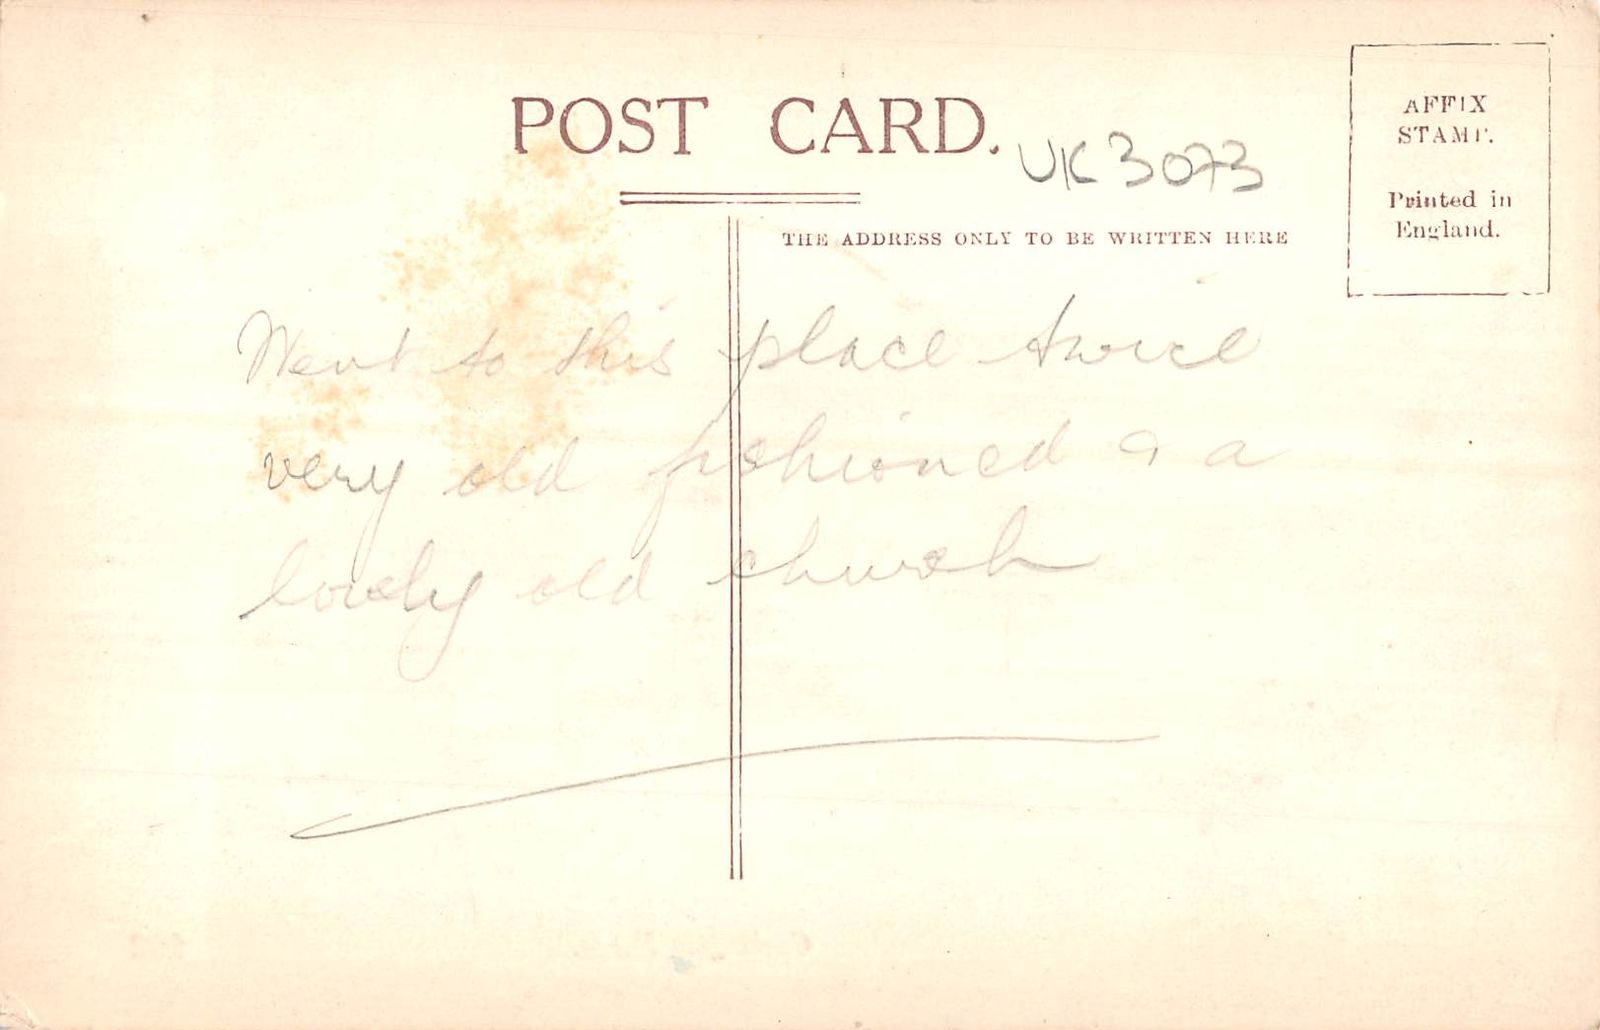 POST CARD.
UK 3073
AFFIX
STAMP.
Printed in
England.
THE ADDRESS ONLY TO BE WRITTEN HERE
Went to this place twice
very old fshioned & a
lovely old church